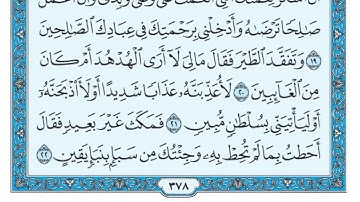 صَٰلِحًا تَرْضَىٰهُ وَأَدْخِلْنِى بِرَحْمَتِكَ فِى عِبَادِكَ ٱلصَّٰلِحِينَ
١٩ وَتَفَقَّدَ ٱلطَّيْرَ فَقَالَ مَالِىَ لَآ أَرَى ٱلْهُدْهُدَ أَمْ كَانَ
مِنَ ٱلْغَآئِبِينَ ٢٠ لَأُعَذِّبَنَّهُۥ عَذَابًا شَدِيدًا أَوْ لَأَا۟ذْبَحَنَّهُۥٓ
أَوْ لَيَأْتِيَنِّى بِسُلْطَٰنٍ مُّبِينٍ ٢١ فَمَكَثَ غَيْرَ بَعِيدٍ فَقَالَ
أَحَطتُ بِمَا لَمْ تُحِطْ بِهِۦ وَجِئْتُكَ مِن سَبَإٍۭ بِنَبَإٍ يَقِينٍ ٢٢
٣٧٨